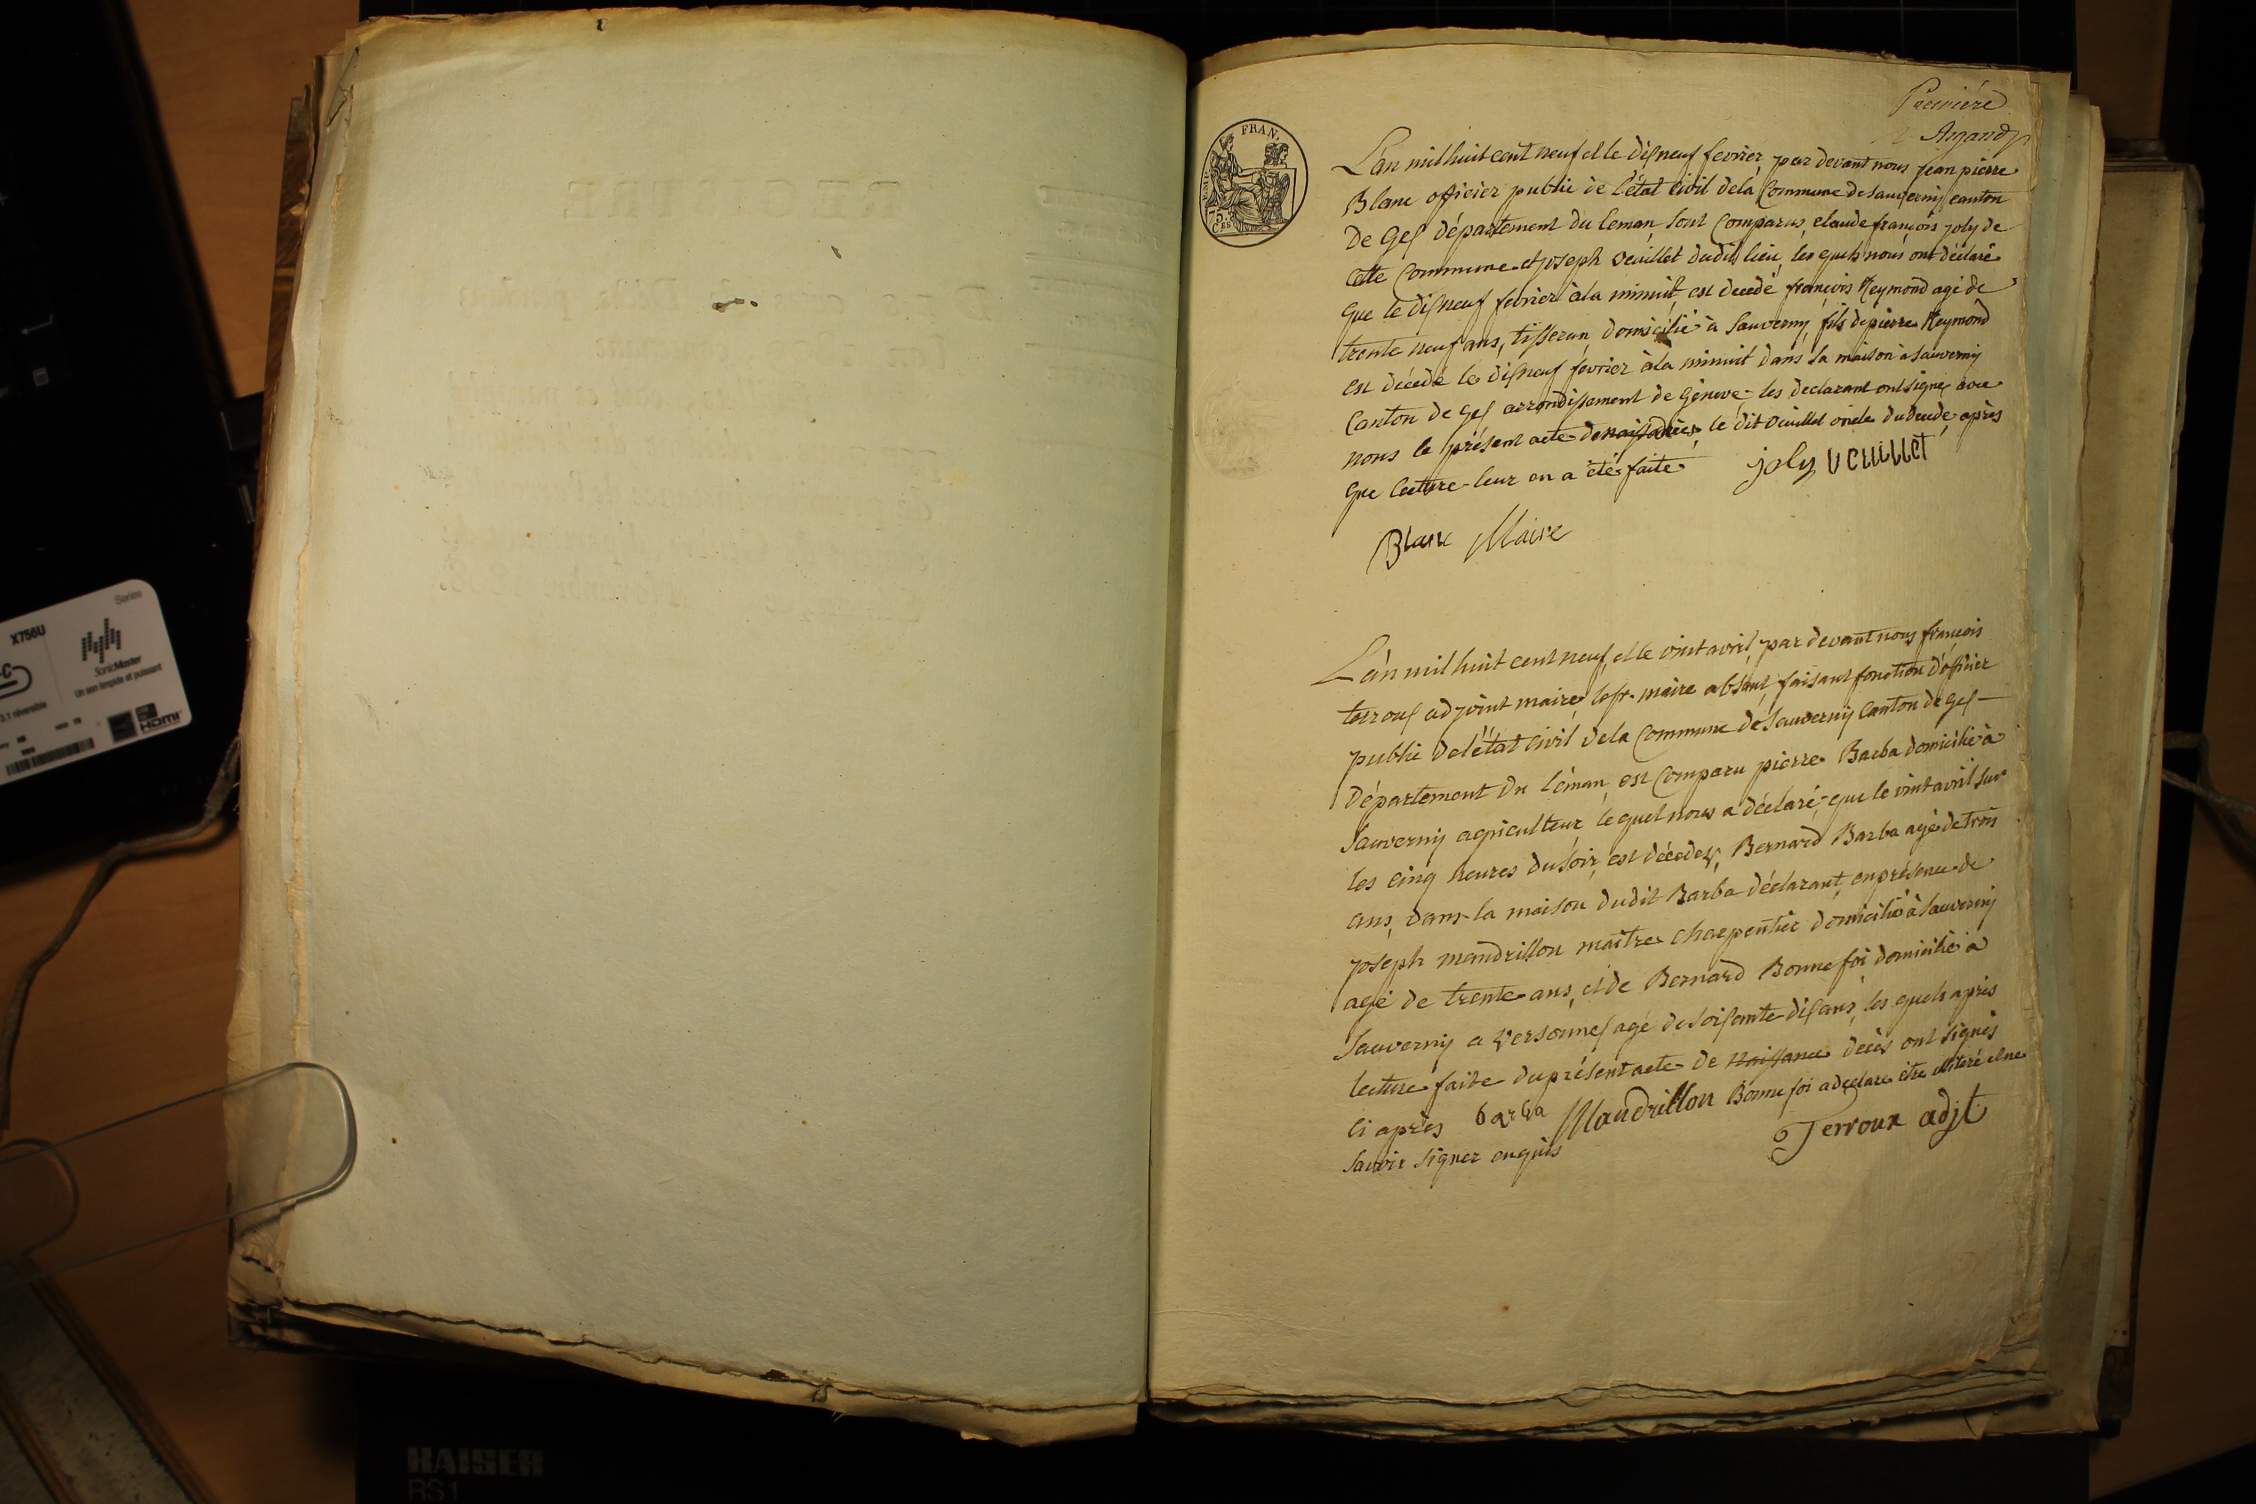 Première
Argand
EMP. FRAN.
75
CES
L'an mil huit cent neuf et le disneuf fevrier par devant nous jean pierre
Blanc officier public de l'état civil de la Commune de Sauverny canton
De Gex département du leman, sont Comparus, claude françois joly de
cette Commune et joseph veuillet dudit lieu, les quels nous ont déclaré
que le disneuf fevrier à la minuit, est decedé françois Reymond agé de
trente neuf ans, tisseran, domicilié à Sauverny fils de pierre Reymond
est décédé le disneuf fevrier à la minuit dans sa maison à sauverny
Canton de Gex arrondissement de Géneve, les declarant ont signes avec
nous le présent acte de naissance, le dit veuillet oncle du decede, après
que lecture leur en a été faite joly veuillet
Blanc Maire
L'an mil huit cent neuf, et le vint avril, par devant nous françois
terroux adjoint maire, le sr. maire absent, faisant fonction d'officier
public de l'état civil, de la Commune de Sauverny Canton de Gex
Département du léman, est Comparu pierre Barba domicilié à
Sauverny agriculteur, lequel nous a déclaré, que le vint avril sur
les cinq heures du soir, est décédez, Bernard Barba agé de trois
ans, dans la maison dudit Barba déclarant, en présence de
joseph mandrillon maitre charpentié domicilié à Sauverny
agé de trente ans, et de Bernard Bonnefoi domicilié a
Sauverny a versonnex agé de soisante dis ans, les quels après
lecture faite du présent acte de naissance décès ont signés
ci après barba Mandrillon Bonnefoi a declare etre illiteré et ne
savoir signer enquis Terroux adjt
X756U
Series
SonicMaster
Un son limpide et puissant
3.1 réversible
HDMI
KAISER
RS1